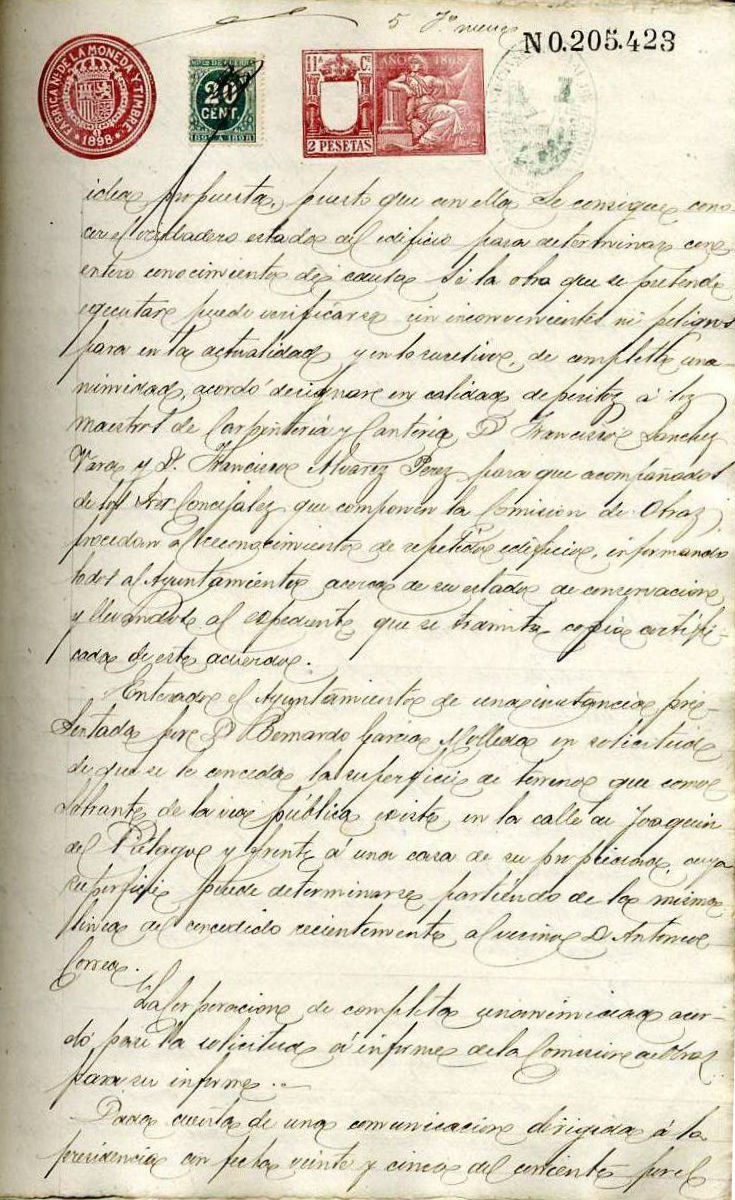 5 7º nueve
N 0.205.423
FABRICA Nª. DE LA MONEDA Y TIMBRE
1898
20
CENT.
11ª C.
AÑO 1898
2 PESETAS
idea propuesta, puesto que con ella se consigue cono-
cer el verdadero estado del edificio para determinar con
entero conocimiento de causa si la obra que se pretende
ejecutar puede verificarse sin inconvenientes ni peligros
para en la actualidad y en lo sucesivo, de completa una-
nimidad acordó designar en calidad de peritos á los
maestros de Carpintería y Cantería D. Francisco Sanchez
Vara y D. Francisco Alvarez Perez para que acompañados
de los Sres Concejales que componen la Comision de Obras,
procedan al reconocimiento de repetido edificio, informando
todos al Ayuntamiento acerca de su estado de conservacion
y llevandose al espediente que se tramita copia certifi-
cada de este acuerdo.
Enterado el Ayuntamiento de una instancia pre-
sentada por D. Bernardo Garcia Molleda en solicitud
de que se le conceda la superficie de terreno que como
sobrante de la via pública existe en la calle de Joaquin
del Piélago y frente á una casa de su propiedad, cuya
superficie puede determinarse partiendo de la misma
linea del concedido recientemente al vecino D. Antonio
Correa.
La Corporacion de completa unanimidad acor-
dó pase la solicitud á informe de la Comision de Obras
para su informe.
Dada cuenta de una comunicacion dirigida á la
presidencia con fecha veinte y cinco del corriente por el